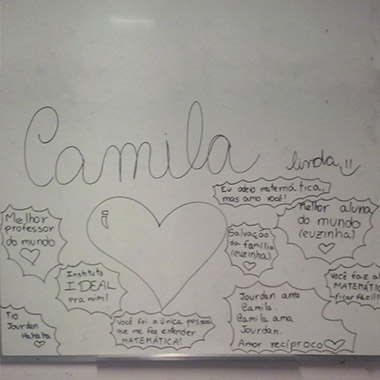 Camila
linda!!
Eu odeio matemática,
mas amo você!
Melhor
professor
do mundo
Melhor aluna
do mundo
(euzinha)
Salvação
da família
(euzinha)
Instituto
IDEAL
pra mim!
Você faz a
MATEMÁTIC
ficar fácil!
Tio
Jourdan
Hahaha
Você foi a única pessoa
que me fez entender
MATEMÁTICA!
Jourdan ama
Camila
Camila ama
Jourdan.
Amor recíproco